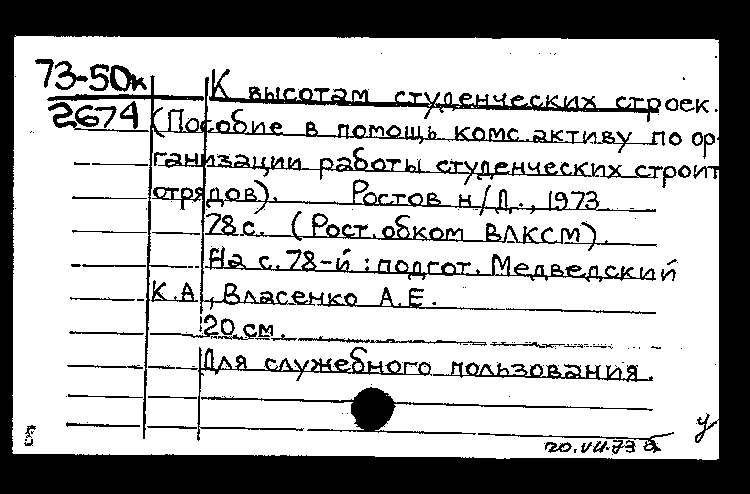 73-50к К высотам студенческих строек.
2674 (Пособие в помощь комс.активу по ор-
ганизации работы студенческих строит
отрядов). Ростов н/Д., 1973
78с. (Рост.обком ВЛКСМ).
На с.78-й: подгот. Медведский
К.А., Власенко А.Е.
20 см.
Для служебного пользования.
20.VII.73